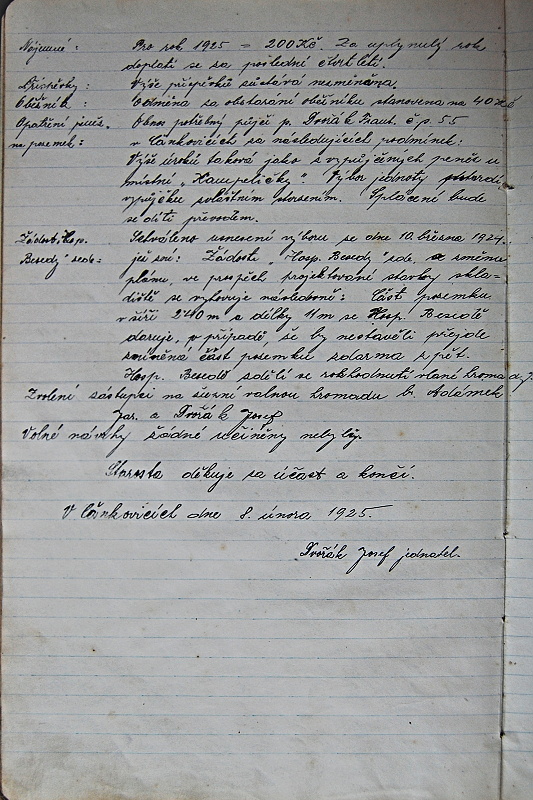 Nájemné: Pro rok 1925 = 200 Kč. Za uplynulý rok
doplatí se za poslední čtvrtletí.
Příspěvky: Výše příspěvků zůstává nezměněna.
Oběžník: Odměna za obstarání oběžníku stanovena na 40 Kč
Opatření peněz. Obnos potřebný půjčí p. Dvořák Frant. č.p. 55
na pozemek: v Čánkovicích za následujících podmínek:
Výše úroků taková jako z vypůjčených peněz u
místní „Kampeličky". Výbor jednoty
výpůjčku zvláštním. Splácení bude
se díti převodem.
Žádost Hosp. Schváleno usnesení výboru ze dne 10. března 1924.
Besedy zde: jež zní: Žádosti „Hosp. Besedy" zde, o směnu
plánu, ve prospěch projektované stavby skla-
diště se vyhovuje následovně: Část pozemku
v šíři 240 m a délky 11 m se Hosp. Besedě
daruje, v případě, že by nestavěli přejde
zmíněná část pozemku zdarma zpět.
Hosp. Besedě sdělí se rozhodnutí valné hromady.
Zvolení zástupci na župní valnou hromadu b. Adámek
Jar. a Dvořák Josef
Volné návrhy žádné učiněny nebyly.
Starosta děkuje za účast a končí.
V Čánkovicích dne 8. února 1925.
Dvořák Josef jednatel.